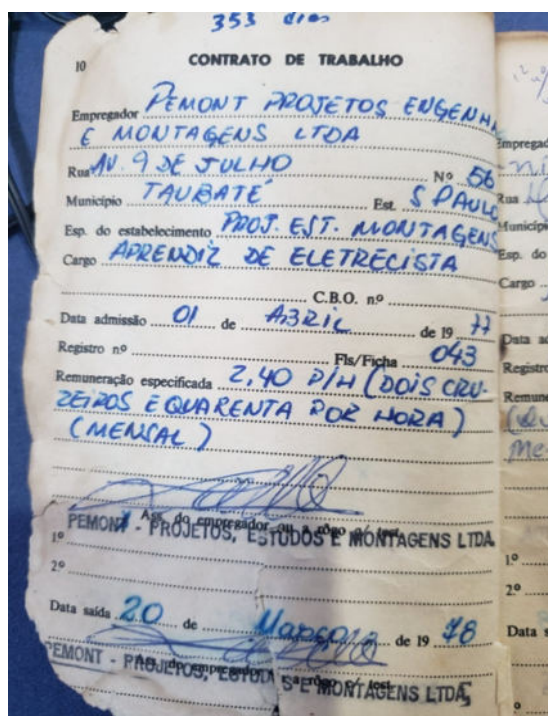 353 dias
10
CONTRATO DE TRABALHO
Empregador PEMONT PROJETOS ENGENHA
E MONTAGENS LTDA
Rua AV. 9 DE JULHO Nº 56
Município TAUBATÉ Est. S PAULO
Esp. do estabelecimento PROJ. EST. MONTAGENS
Cargo APRENDIZ DE ELETRECISTA
C.B.O. nº
Data admissão 01 de ABRIL de 19 77
Registro nº Fls/Ficha 043
Remuneração especificada 2,40 P/H (DOIS CRU-
ZEIROS E QUARENTA POR HORA)
(MENSAL)
Ass. do empregador ou a rôgo c/ test.
PEMONT - PROJETOS, ESTUDOS E MONTAGENS LTDA.
1º
2º
Data saída 20 de Março de 19 78
PEMONT - PROJETOS, ESTUDOS E MONTAGENS LTDA.
Empregad
Rua
Municípi
Esp. do
Cargo
Data ad
Registro
Remune
Me
1º
2º
Data s